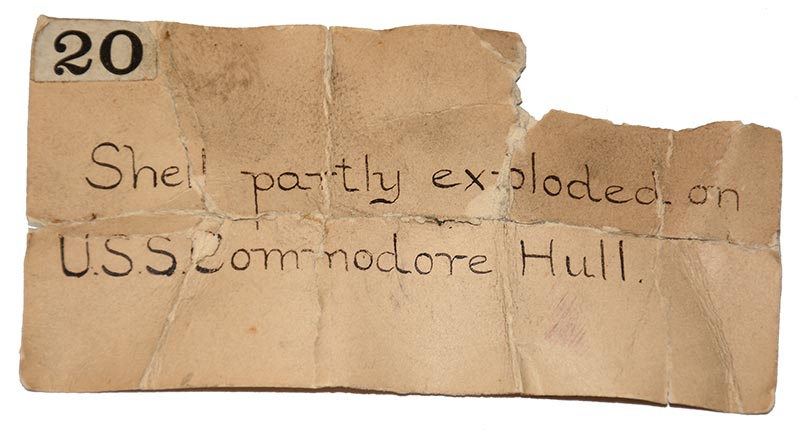 20
Shell partly exploded on
U.S.S. Commodore Hull.